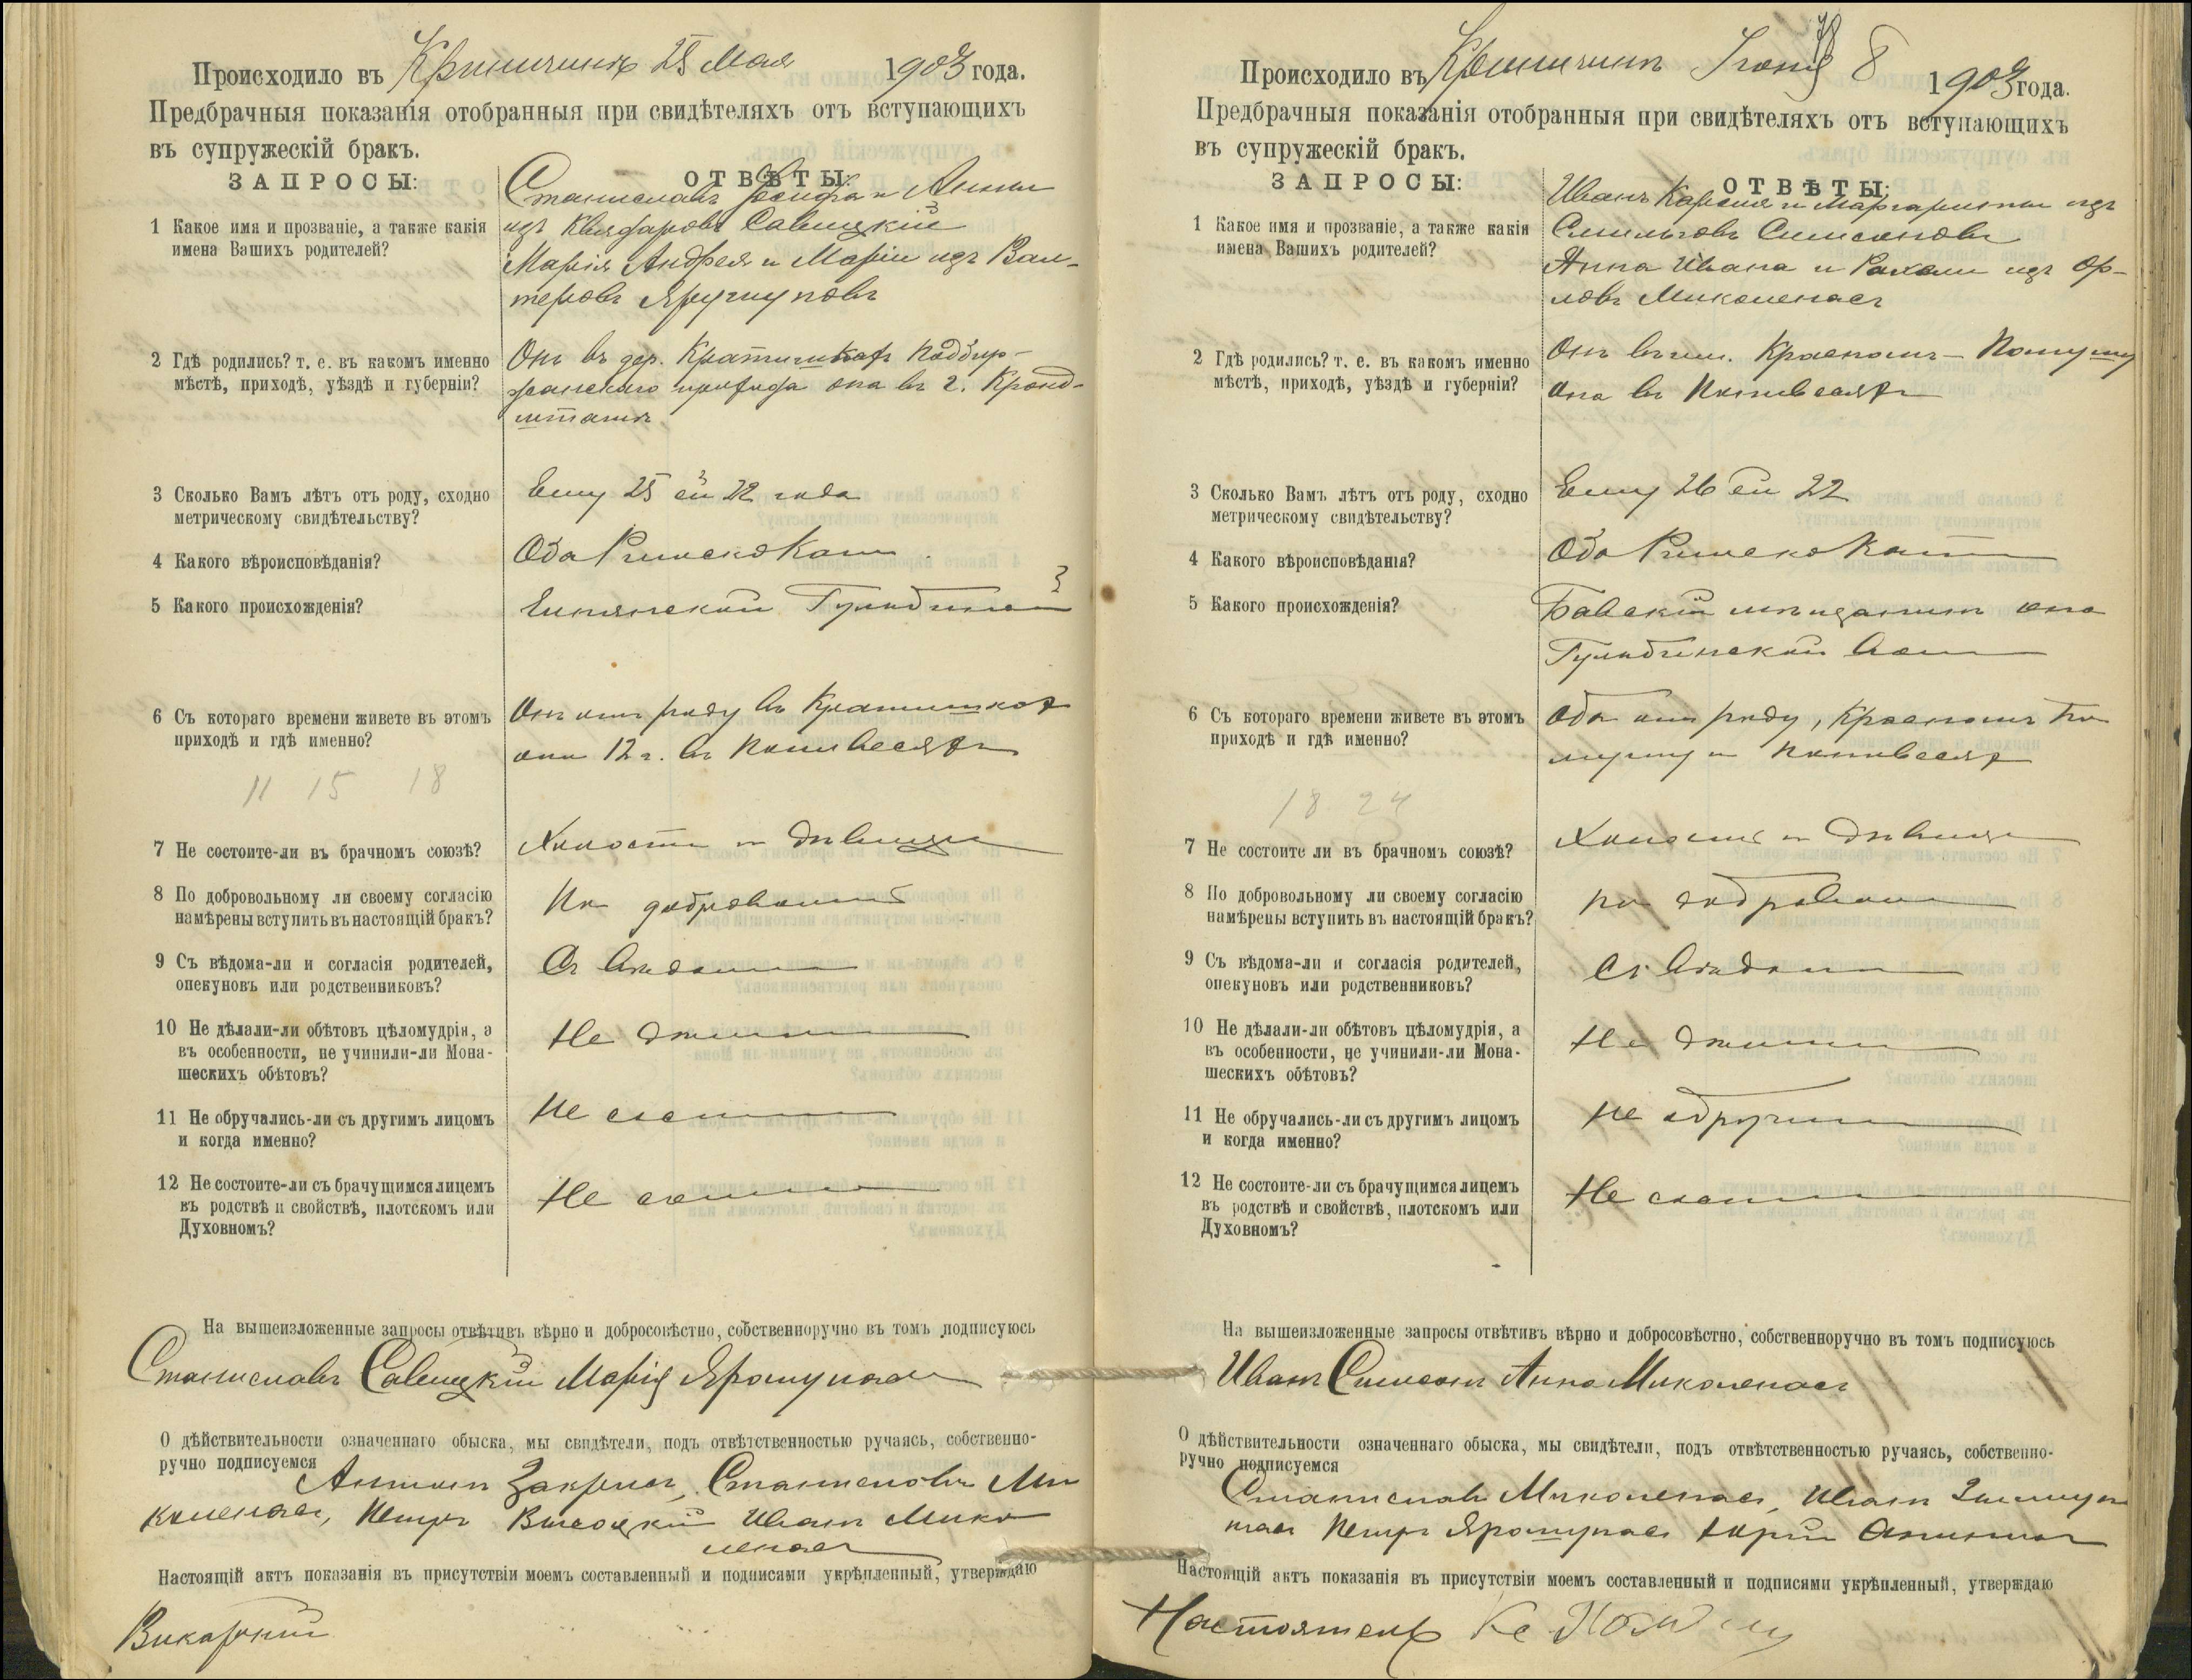 Происходило въ Криничинъ 25 Мая 1903 года.
Предбрачныя показанія отобранныя при свидѣтеляхъ отъ вступающихъ
въ супружескій бракъ.
ЗАПРОСЫ: ОТВѢТЫ:
1 Какое имя и прозваніе, а также какія
имена Вашихъ родителей?
Станиславъ Іосифа и Анны
изъ Савицкій
Марія Андрея и Маріи изъ Вал-
теровъ
2 Гдѣ родились? т. е. въ какомъ именно
мѣстѣ, приходѣ, уѣздѣ и губерніи?
Онъ въ дер. Поддбир-
жанскаго прихода она въ г. Кронд-
штатъ
3 Сколько Вамъ лѣтъ отъ роду, сходно
метрическому свидѣтельству?
Ему 25 ей 22 года
4 Какого вѣроисповѣданія?
Оба Римско Кат
5 Какого происхожденія?
6 Съ котораго времени живете въ этомъ
приходѣ и гдѣ именно?
Онъ отъ роду въ
она 12 г. въ
11 15 18
7 Не состоите-ли въ брачномъ союзѣ?
Холости и дѣвица
8 По добровольному ли своему согласію
намѣрены вступить въ настоящій бракъ?
По добровол
9 Съ вѣдома-ли и согласія родителей,
опекуновъ или родственниковъ?
Съ вѣдома
10 Не дѣлали-ли обѣтовъ цѣломудрія, а
въ особенности, не учинили-ли Мона-
шескихъ обѣтовъ?
Не дѣлали
11 Не обручались-ли съ другимъ лицомъ
и когда именно?
Не
12 Не состоите-ли съ брачущимся лицемъ
въ родствѣ и свойствѣ, плотскомъ или
Духовномъ?
Не
На вышеизложенные запросы отвѣтивъ вѣрно и добросовѣстно, собственноручно въ томъ подписуюсь
Станиславъ Савицкій Марія
О дѣйствительности означеннаго обыска, мы свидѣтели, подъ отвѣтственностью ручаясь, собственно-
ручно подписуемся
Антонъ Станиславъ Ми
коленасъ, Петръ Высоцкій Иванъ Мико
ленасъ
Настоящій актъ показанія въ присутствіи моемъ составленный и подписами укрѣпленный, утверждаю
Викарный
Происходило въ Криничинъ Іюня 8 1903 года.
Предбрачныя показанія отобранныя при свидѣтеляхъ отъ вступающихъ
въ супружескій бракъ.
ЗАПРОСЫ: ОТВѢТЫ:
1 Какое имя и прозваніе, а также какія
имена Вашихъ родителей?
Иванъ Карола и Маргариты изъ
Анна Ивана и Рахели изъ Ор-
ловъ Миколенасъ
2 Гдѣ родились? т. е. въ какомъ именно
мѣстѣ, приходѣ, уѣздѣ и губерніи?
Онъ въ
она въ
3 Сколько Вамъ лѣтъ отъ роду, сходно
метрическому свидѣтельству?
Ему 26 ей 22
4 Какого вѣроисповѣданія?
Оба Римско Кат
5 Какого происхожденія?
мѣщанинъ она
6 Съ котораго времени живете въ этомъ
приходѣ и гдѣ именно?
Оба отъ роду,
18 24
7 Не состоите ли въ брачномъ союзѣ?
Холостъ и дѣвица
8 По добровольному ли своему согласію
намѣрены вступить въ настоящій бракъ?
по добровол
9 Съ вѣдома-ли и согласія родителей,
опекуновъ или родственниковъ?
Съ вѣдома
10 Не дѣлали-ли обѣтовъ цѣломудрія, а
въ особенности, не учинили-ли Мона-
шескихъ обѣтовъ?
Не дѣлали
11 Не обручались-ли съ другимъ лицомъ
и когда именно?
Не обручали
12 Не состоите-ли съ брачущимся лицемъ
въ родствѣ и свойствѣ, плотскомъ или
Духовномъ?
Не
На вышеизложенные запросы отвѣтивъ вѣрно и добросовѣстно, собственноручно въ томъ подписуюсь
Иванъ Симсонъ Анна Миколенасъ
О дѣйствительности означеннаго обыска, мы свидѣтели, подъ отвѣтственностью ручаясь, собственно-
ручно подписуемся
Станиславъ Миколенасъ, Иванъ
Петръ
Настоящій актъ показанія въ присутствіи моемъ составленный и подписами укрѣпленный, утверждаю
Настоятель